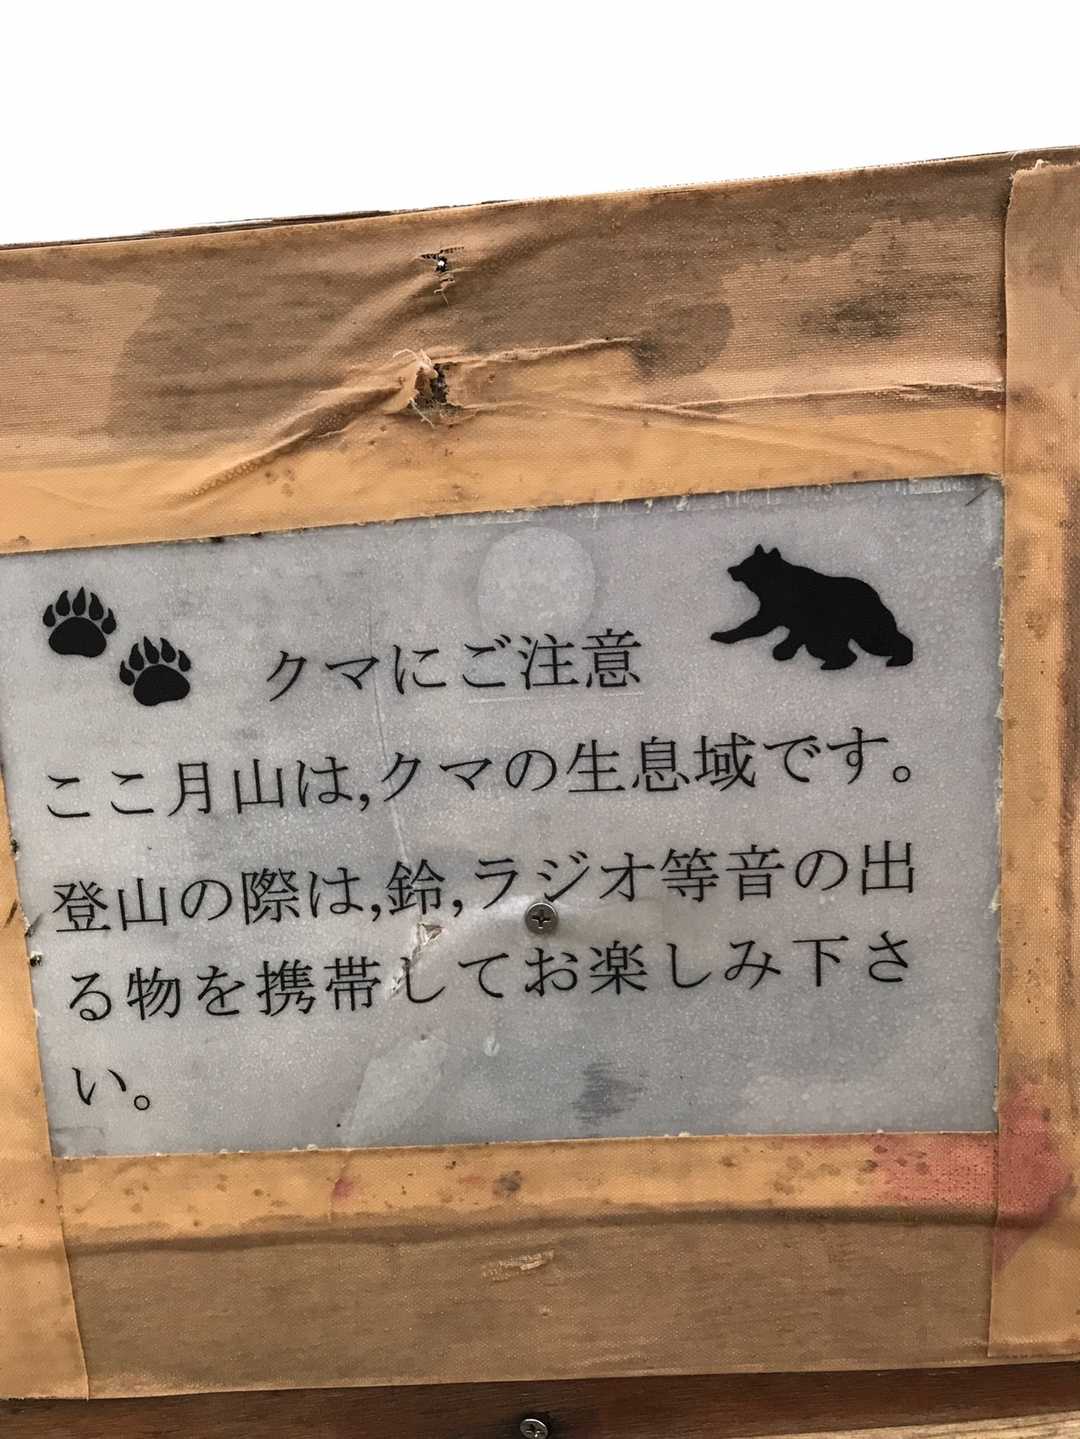 クマにご注意
ここ月山は,クマの生息域です。
登山の際は,鈴,ラジオ等音の出
る物を携帯してお楽しみ下さ
い。